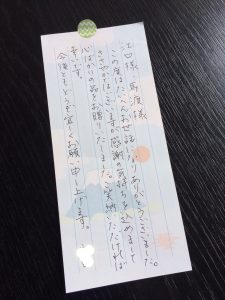 江口様、馬渡様
この度はたいへんお世話になりありがとうございました。
ささやかではございますが感謝の気持ちを込めまして
心ばかりの品をお贈りいたしました。ご笑納いただければ
幸いです。
今後ともどうぞ宜しくお願い申し上げます。